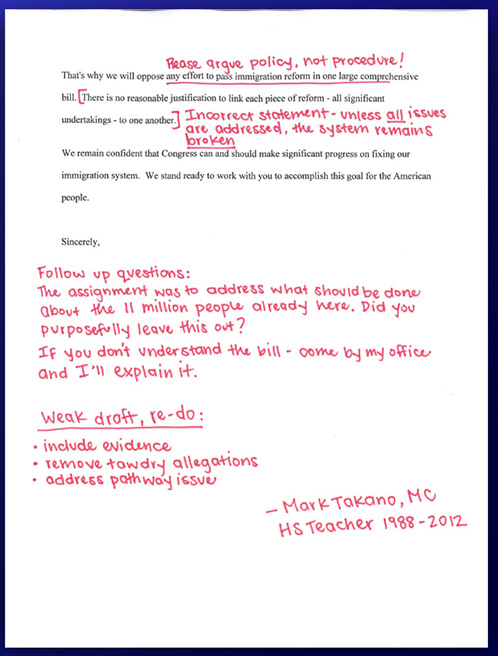 Please argue policy, not procedure!
That's why we will oppose any effort to pass immigration reform in one large comprehensive
bill. [There is no reasonable justification to link each piece of reform - all significant
undertakings - to one another.] Incorrect statement - unless all issues
are addressed, the system remains
broken
We remain confident that Congress can and should make significant progress on fixing our
immigration system. We stand ready to work with you to accomplish this goal for the American
people.
Sincerely,
Follow up questions:
The assignment was to address what should be done
about the 11 million people already here. Did you
purposefully leave this out?
If you don't understand the bill - come by my office
and I'll explain it.
Weak draft, re-do:
• include evidence
• remove tawdry allegations
• address pathway issue
- Mark Takano, MC
HS Teacher 1988-2012